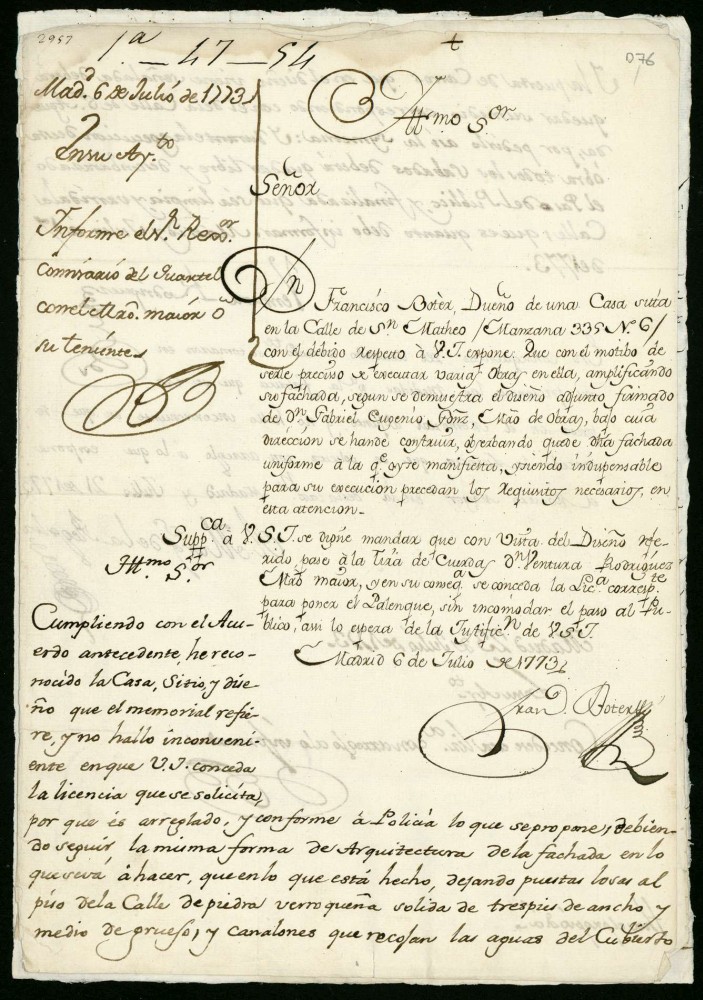 2957
1.ª - 47 - 54
+
D76
Mad.d 6 de Julio de 1773
En su Ay.to
Informe el s.r Rexo.r
Comisario del Quartel
con el Mro. maior ò
su teniente
Ill.mo S.or
Señor
D.n Francisco Boter, Dueño de una Casa sita
en la Calle de S.n Matheo / Manzana 335 N.º 6/
con el debido respeto à V.I. expone: Que con el motibo de
serle preciso executar varias Obras en ella, amplificando
su fachada, segun se demuestra el diseño adjunto, firmado
de D.n Gabriel Eugenio, Mro de Obras, bajo cuia
direccion se han de construir, observando quede dha fachada
uniforme à la q.e oy se manifiesta, y siendo indispensable
para su execucion precedan los Requisitos necesarios, en
esta atencion
Supp.ca à V.S.I. se digne mandar que con Vista del Diseño refe-
rido, pase à la tira de Cuerdas D.n Ventura Rodriguez
Mro maior, y en su conseq.a se conceda la Lic.a corresp.te
para poner el Palenque, sin incomodar el paso al Pu-
blico, asi lo espera de la Justific.n de V.S.I.
Madrid 6 de Julio de 1773
Fran.co Boter
Ill.mo S.or
Cumpliendo con el Acu-
erdo antecedente, he reco-
nocido la Casa, Sitio, y dise-
ño que el memorial refie-
re, y no hallo inconveni-
ente en que V.I. conceda
la licencia que se solicita,
por que es arreglado, y conforme à Policia lo que se propone, debien-
do seguir la misma forma de Arquitectura de la fachada en lo
que se va à hacer, que en lo que está hecho, dejando puestas losas al
piso de la Calle de piedra verroqueña solida de tres pies de ancho y
medio de grueso, y canalones que recojan las aguas del Cubierto